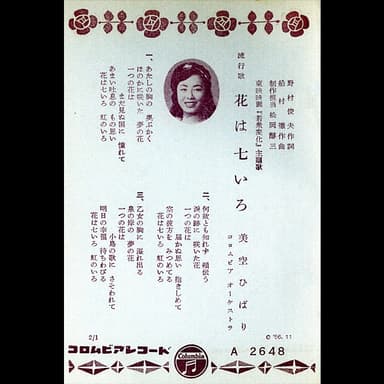 野村俊夫作詞
船村徹作曲
制作担当 松岡
東映映画『若衆変化』主題歌
流行歌
花は七いろ
美空ひばり
コロムビア オーケストラ
一、あたしの胸の 奥ぶかく
ほのかに咲いた 夢の花
一つの花は
まだ見ぬ国に 憧れて
あまい吐息の もの思い
花は七いろ 虹のいろ
二、何故とも知れず 頬伝う
涙の跡に 咲いた花
一つの花は
届かぬ思い 抱きしめて
空の彼方を みつめてる
花は七いろ 虹のいろ
三、乙女の胸に 溢れ出る
泉の岸の 夢の花
一つの花は
小鳥の歌に さそわれて
明日の幸福 待ちわびる
花は七いろ 虹のいろ
2/1
© '56. 11
コロムビアレコード
Columbia
A 2648